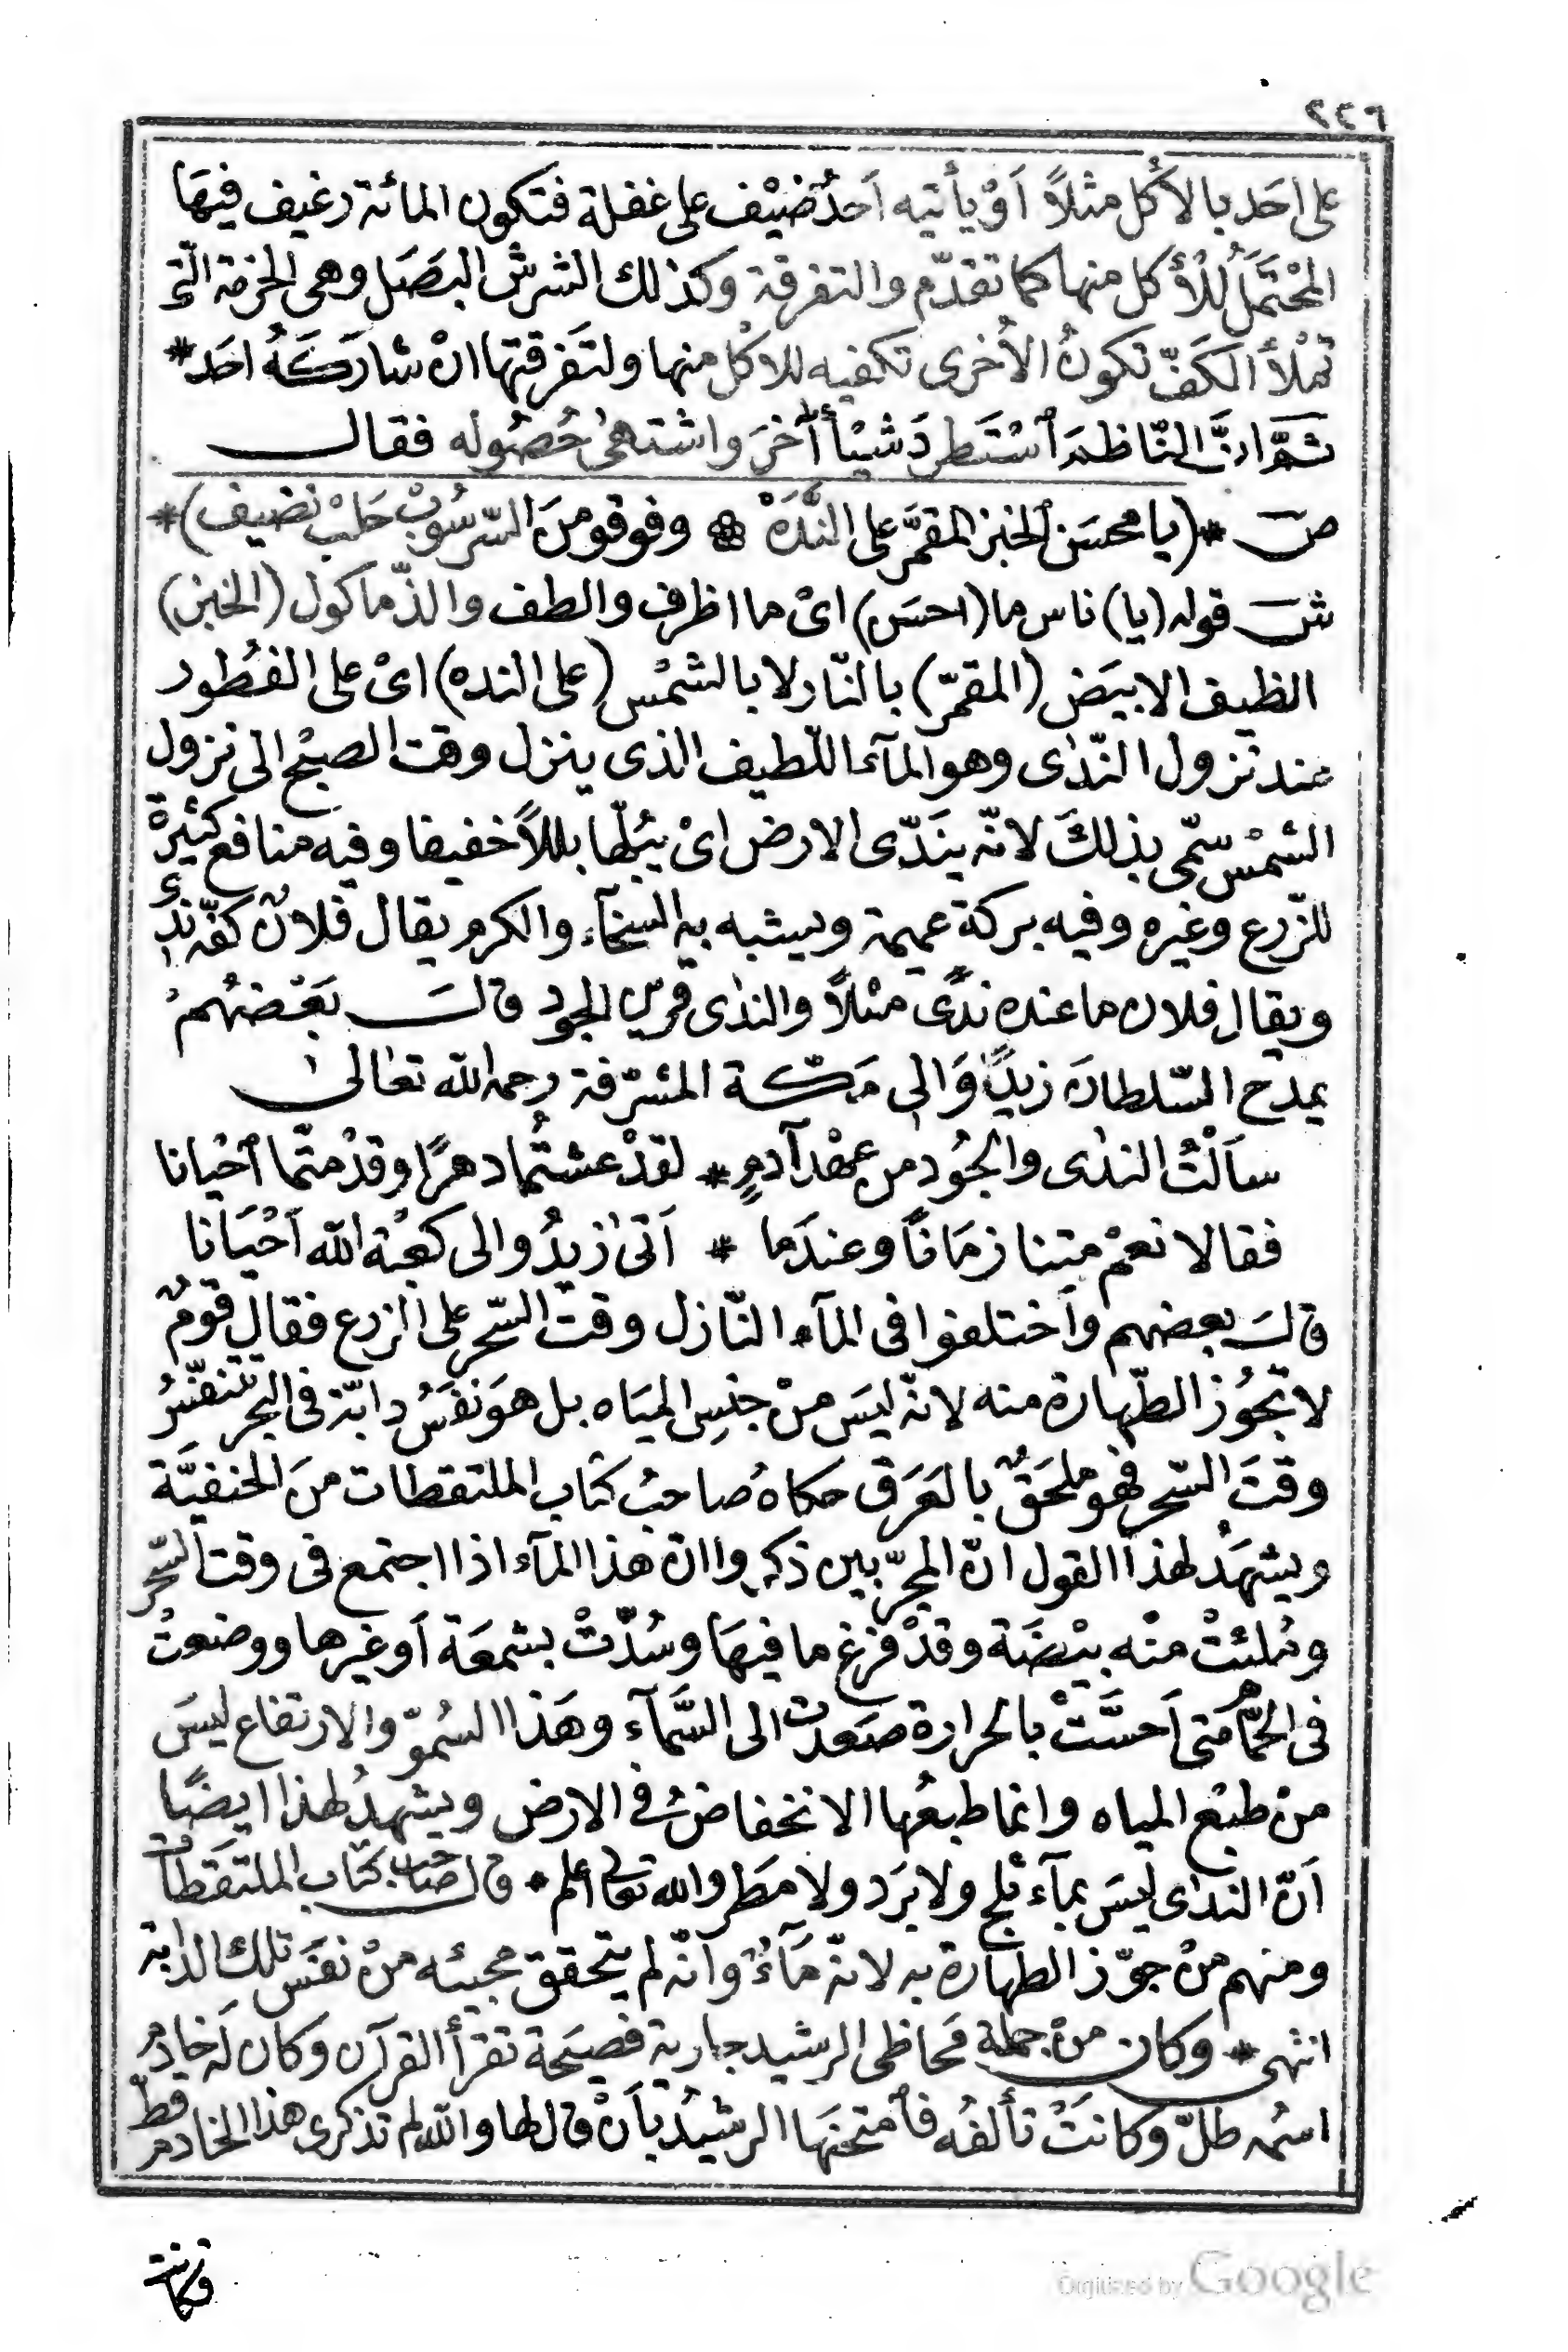 ٢٤٦
على احَد بالأكل مثلاً اَوْ يأتيه اَحدُ ضيْف على غفلة فتكون المائة رغيف فيهَا
المحْتمَلُ للأكل منها كما تقدّم والتفرقة وكذلك الشرش البصَل وهى الحزمة الّتى
تملأ الكَفّ تكونُ الأخرى تكفيه للاكل منها ولتَفرقتها انْ شارَكَهُ احَد *
ثمَّ انَّ النّاظمَ ٱسْتَطردَ شيْأً آخرَ واشتهىٰ حُصُوله فقال
ص * (يا محسَن ٱلخبز المقمَّر على النَّدَهْ ۞ وفوقو منَ السّرسُوبْ حَلبْ نضيف) *
ش قوله (يا) ناس ما (احسَن) اىْ ما اظرف والطف والذّ ماكول (الخبز)
الظيف الابيَض (المقمّر) بالنّار لا بالشمْس (على النده) اىْ على الفطُور
عند نزول النّدٰى وهو المآء اللّطيف الذى ينزل وقت الصبْح الى نزول
الشمْس سمّى بذلكَ لانّه ينَدّى الارض اىْ يبُلّها بللاً خفيفا وفيه منافع كثيرةٌ
للزّرع وغيره وفيه بركة عميمة ويشبه به السّخآء والكرم يقال فلانٌ كفّه ندىٌّ
ويقال فلان ما عنده ندًى مثلاً والندٰى قرين الجود قالَ بَعْضهُمْ
يمدح السّلطانَ زيدًا وَالى مَكّة المشرّفة رحمه الله تعٰالىٰ
سأَلْتُ الندٰى والجُود من عهْد آدمٍ * لقدْ عشتُما دهرًا وقدْ متّما ٱحْيانا
فقالا نعمْ متنا زمَانًا وعندَما * اَتىٰ زيدُ والى كعْبة الله اَحْيَانا
قالَ بعضهم وٱختلفوا فى المآء النّازل وقت السّحر على الزرع فقال قومٌ
لا تجُوز الطّهارة منه لانّه ليسَ منْ جنسِ المِيَاه بل هوَ نفَسُ دابّة فى البحر تتنفّسُ
وقتَ السّحر فهو ملحَقٌ بالعَرَق حكاهُ صاحبُ كتاب الملتقطات منَ الحنفيَّة
ويشهَدُ لهذا القول انّ المجرّبين ذكروا انّ هذا المآء اذا اجتمع فى وقت السّحر
ومُلئتْ منْه بيْضَة وقدْ فرغ ما فيهَا وسُدّتْ بشمعَة اَو غيرها ووضعتْ
فى الحمّام متى اَحسَّتْ بالحرارة صَعدت الى السَّمآء وهَذا السُموّ والارتفاع ليسَ
منْ طبْع المياه وانما طبعُها الانخفاضُ فى الارض ويشهدُ لهذا ايضًا
اَنّ الندٰى ليسَ بمآء ثلج ولا برَد ولا مطَر والله تعالى اعلم * قال صَاحب كتاب الملتقطات
ومنهم منْ جوّز الطهارة به لانّه مَآءٌ وانّه لم يتحقق مجيئه منْ نفَس تلك الدابة
انتهى * وكان منْ جملة مَحاظى الرشيد جارية فصيحة تقرأ القرآن وكان لهُ خادم
اسمُه طلّ وكانتْ تألفُه فٱمتحنَها الرشيدُ بأنْ قال لها والله لم تذكرى هذا الخادم قطّ
وكانت
Digitized by Google